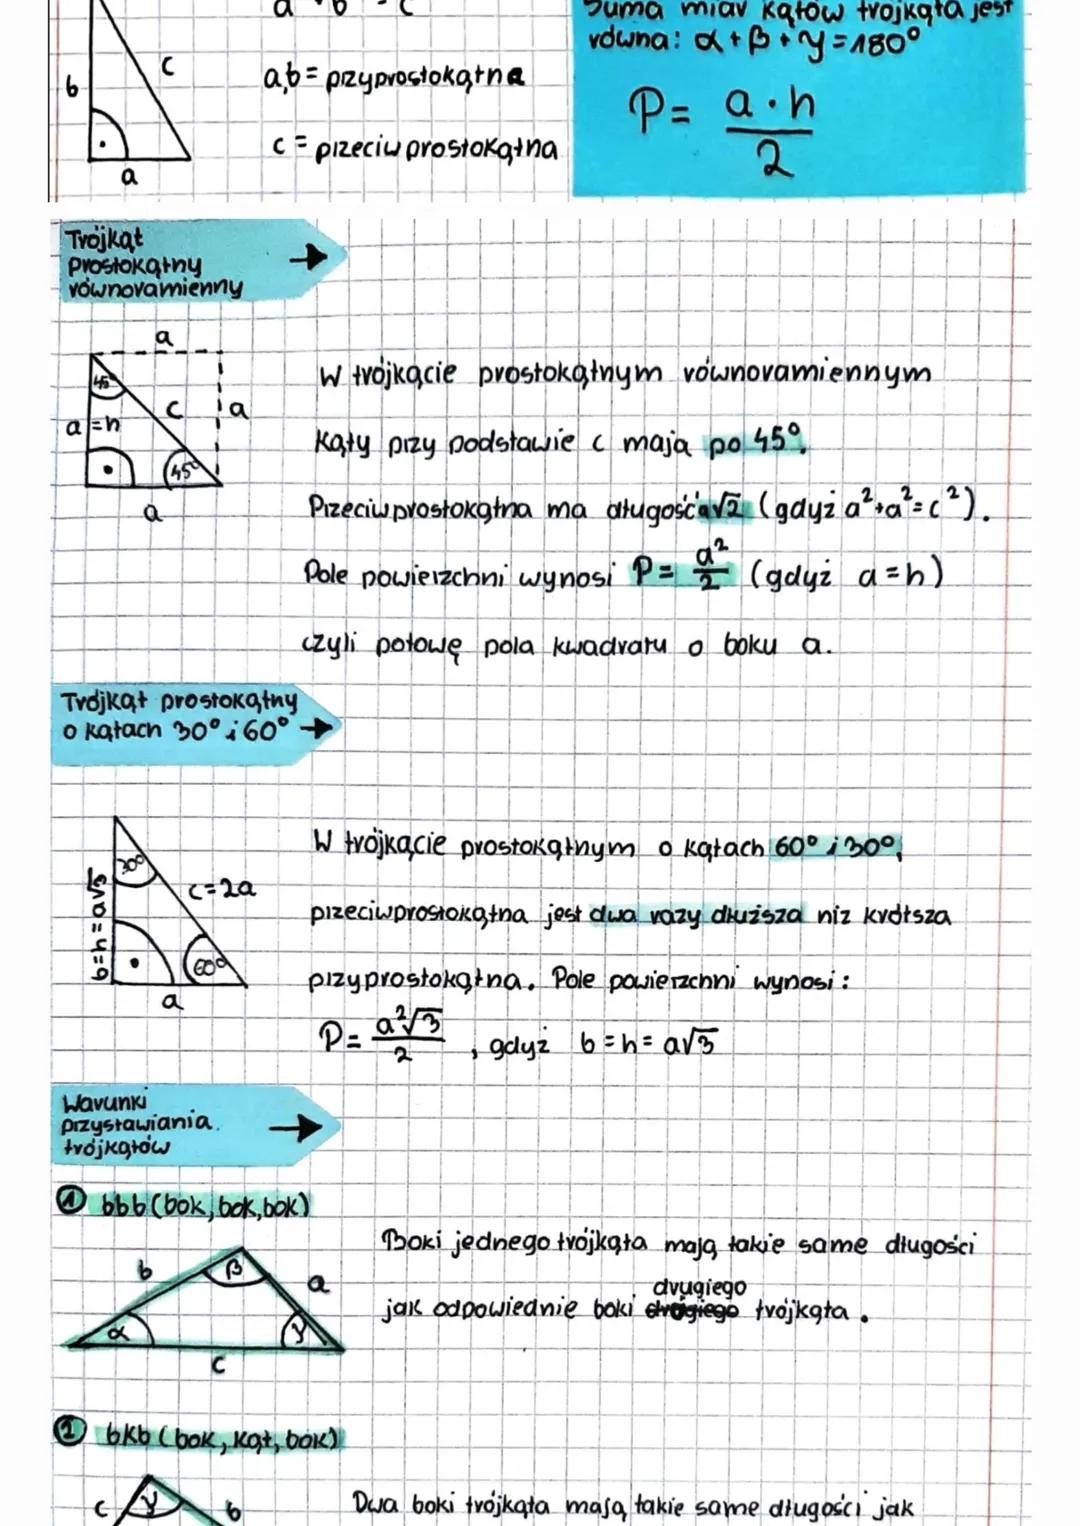 Suma miar kątów trójkąta jest
równa: α + β + γ = 180°
P = a · h / 2
b
c
a
a,b = przyprostokątne
c = przeciwprostokątna
Trójkąt
prostokątny
równoramienny
a
45°
a = h
c
a
45°
a
W trójkącie prostokątnym równoramiennym
kąty przy podstawie c mają po 45°.
Przeciwprostokątna ma długość a√2 (gdyż a²+a²=c²).
Pole powierzchni wynosi P = a²/2 (gdyż a = h)
czyli połowę pola kwadratu o boku a.
Trójkąt prostokątny
o kątach 30° i 60°
30°
b=h=a√3
c=2a
60°
a
W trójkącie prostokątnym o kątach 60° i 30°,
przeciwprostokątna jest dwa razy dłuższa niz krótsza
przyprostokątna. Pole powierzchni wynosi:
P = a²√3 / 2, gdyż b = h = a√3
Warunki
przystawiania
trójkątów
1 bbb (bok, bok, bok)
b
β
a
α
γ
c
Boki jednego trójkąta mają takie same długości
drugiego
jak odpowiednie boki trójkąta.
2 bkb (bok, kąt, bok)
c
γ
b
Dwa boki trójkąta mają takie same długości jak